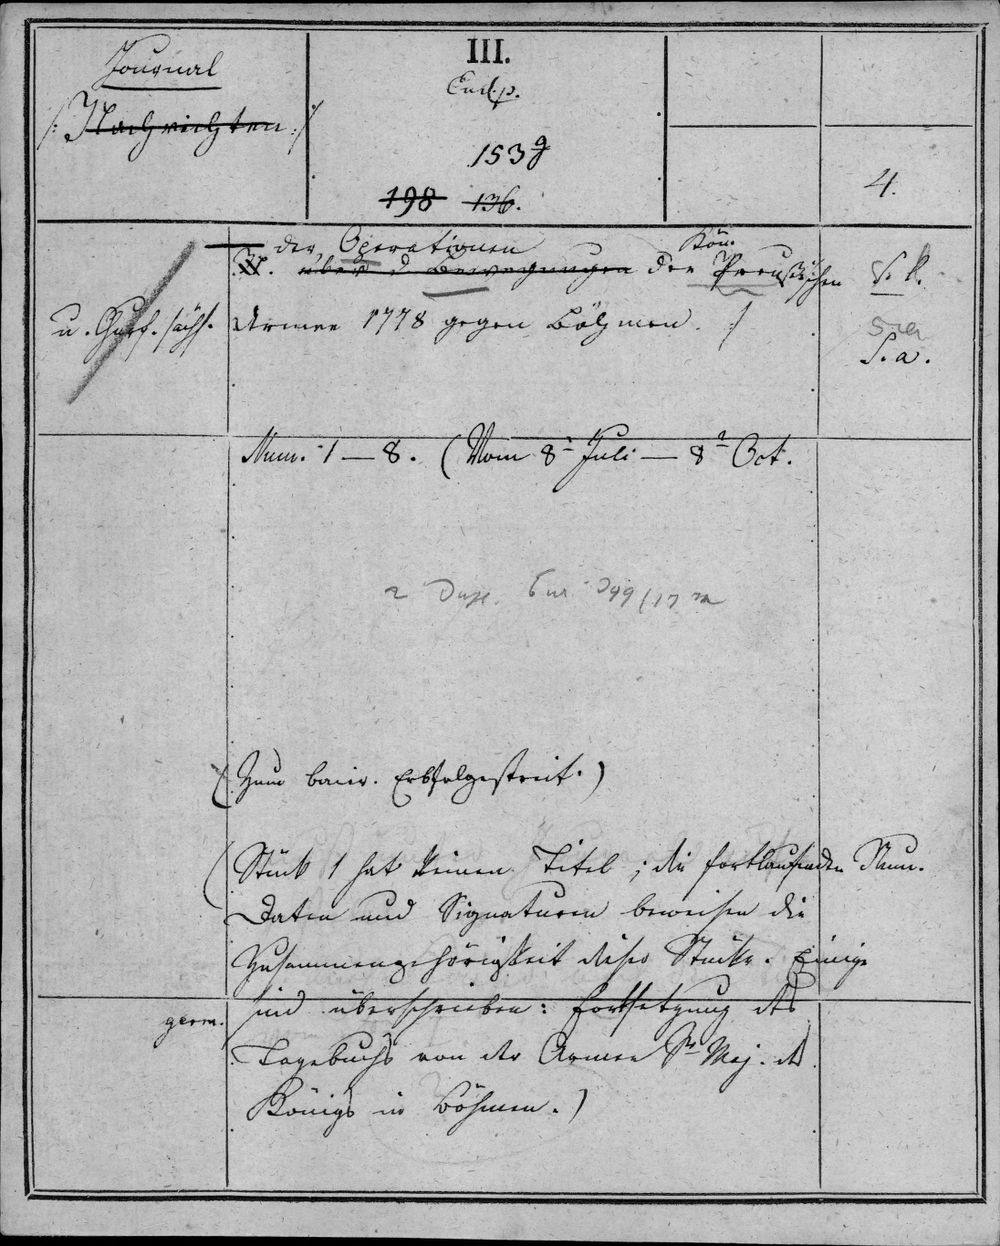 Journal
/: Nachrichten :/
III.
Eur. p.
153 g
198 136.
4.
der Operationen
über d Bewegungen der Kön. Preußischen
u. Churf. sächs. Armee 1778 gegen Böhmen. /
S. l.
S. a.
Num. 1 — 8. (Vom 8t Juli — 8t Oct.
2 Dupl. Eur. 399/17 m
(Zum baier. Erbfolgestreit.)
(Stück 1 hat keinen Titel; die fortlaufenden Num.
Daten und Signaturen beweisen die
Zusammengehörigkeit dieser Stücke. Einige
sind überschrieben: Fortsetzung des
germ.
Tagebuchs von der Armee Sr Maj. des
Königs in Böhmen.)